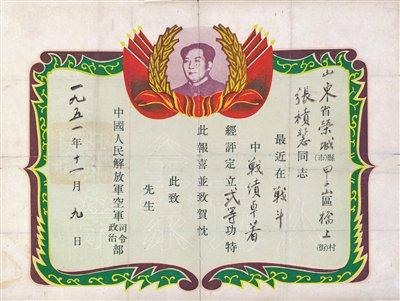 山東省榮城縣(市)甲子山區橋上村(街)
張積慧同志
最近在戰斗
中戰績卓著
經評定立弍等功特
此報喜並致贺忱
此致
先生
中國人民解放軍空軍司令政治部
一九五一年十一月九日